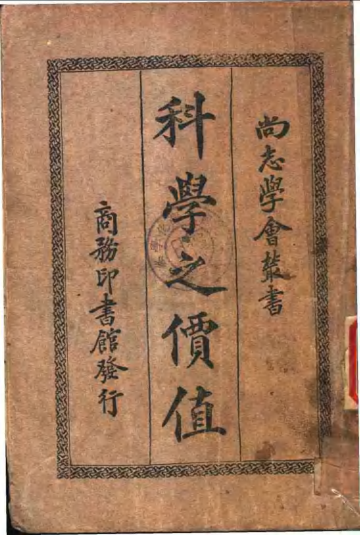 尚志學會叢書
科學之價值
商務印書館發行